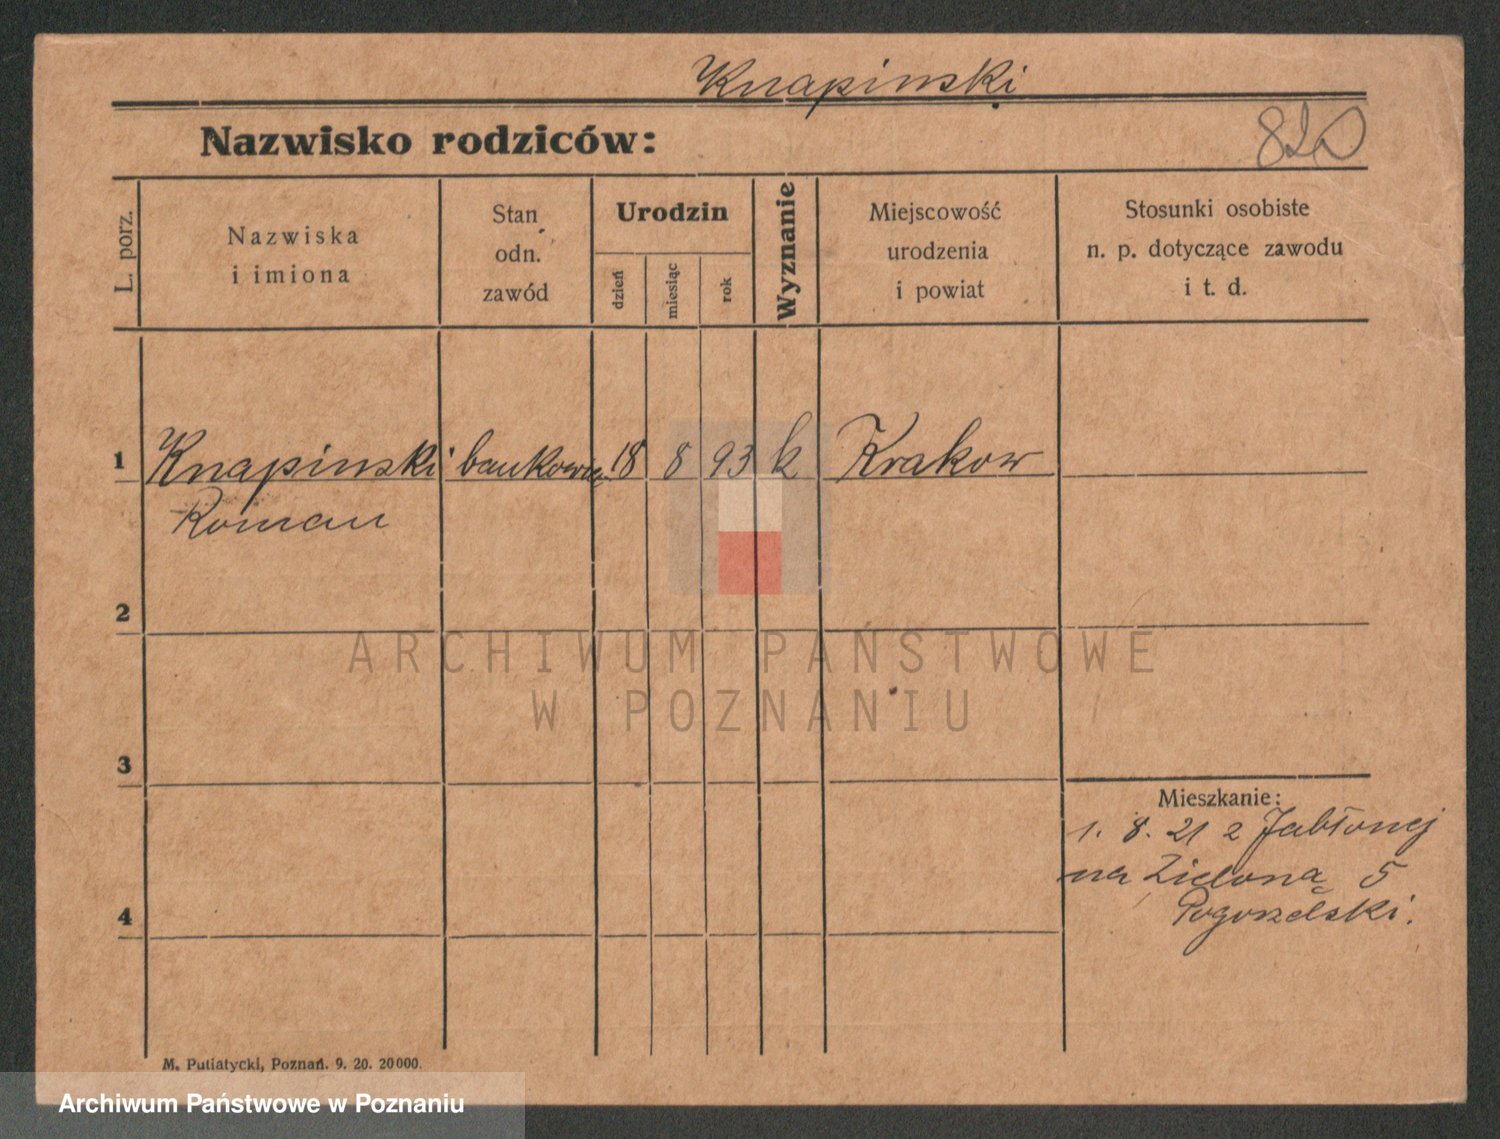 Knapinski
Nazwisko rodziców:
820
L. porz.
Nazwiska
i imiona
Stan
odn.
zawód
Urodzin
dzień
miesiąc
rok
Wyznanie
Miejscowość
urodzenia
i powiat
Stosunki osobiste
n. p. dotyczące zawodu
i t. d.
1 Knapinski bankowiec 18 8 93 k Krakow
Roman
2
ARCHIWUM PAŃSTWOWE
W POZNANIU
3
Mieszkanie:
1. 8. 21 z Jabłonej
na Zieloną 5
Pogorzelski.
4
M. Putiatycki, Poznań. 9. 20. 20000.
Archiwum Państwowe w Poznaniu